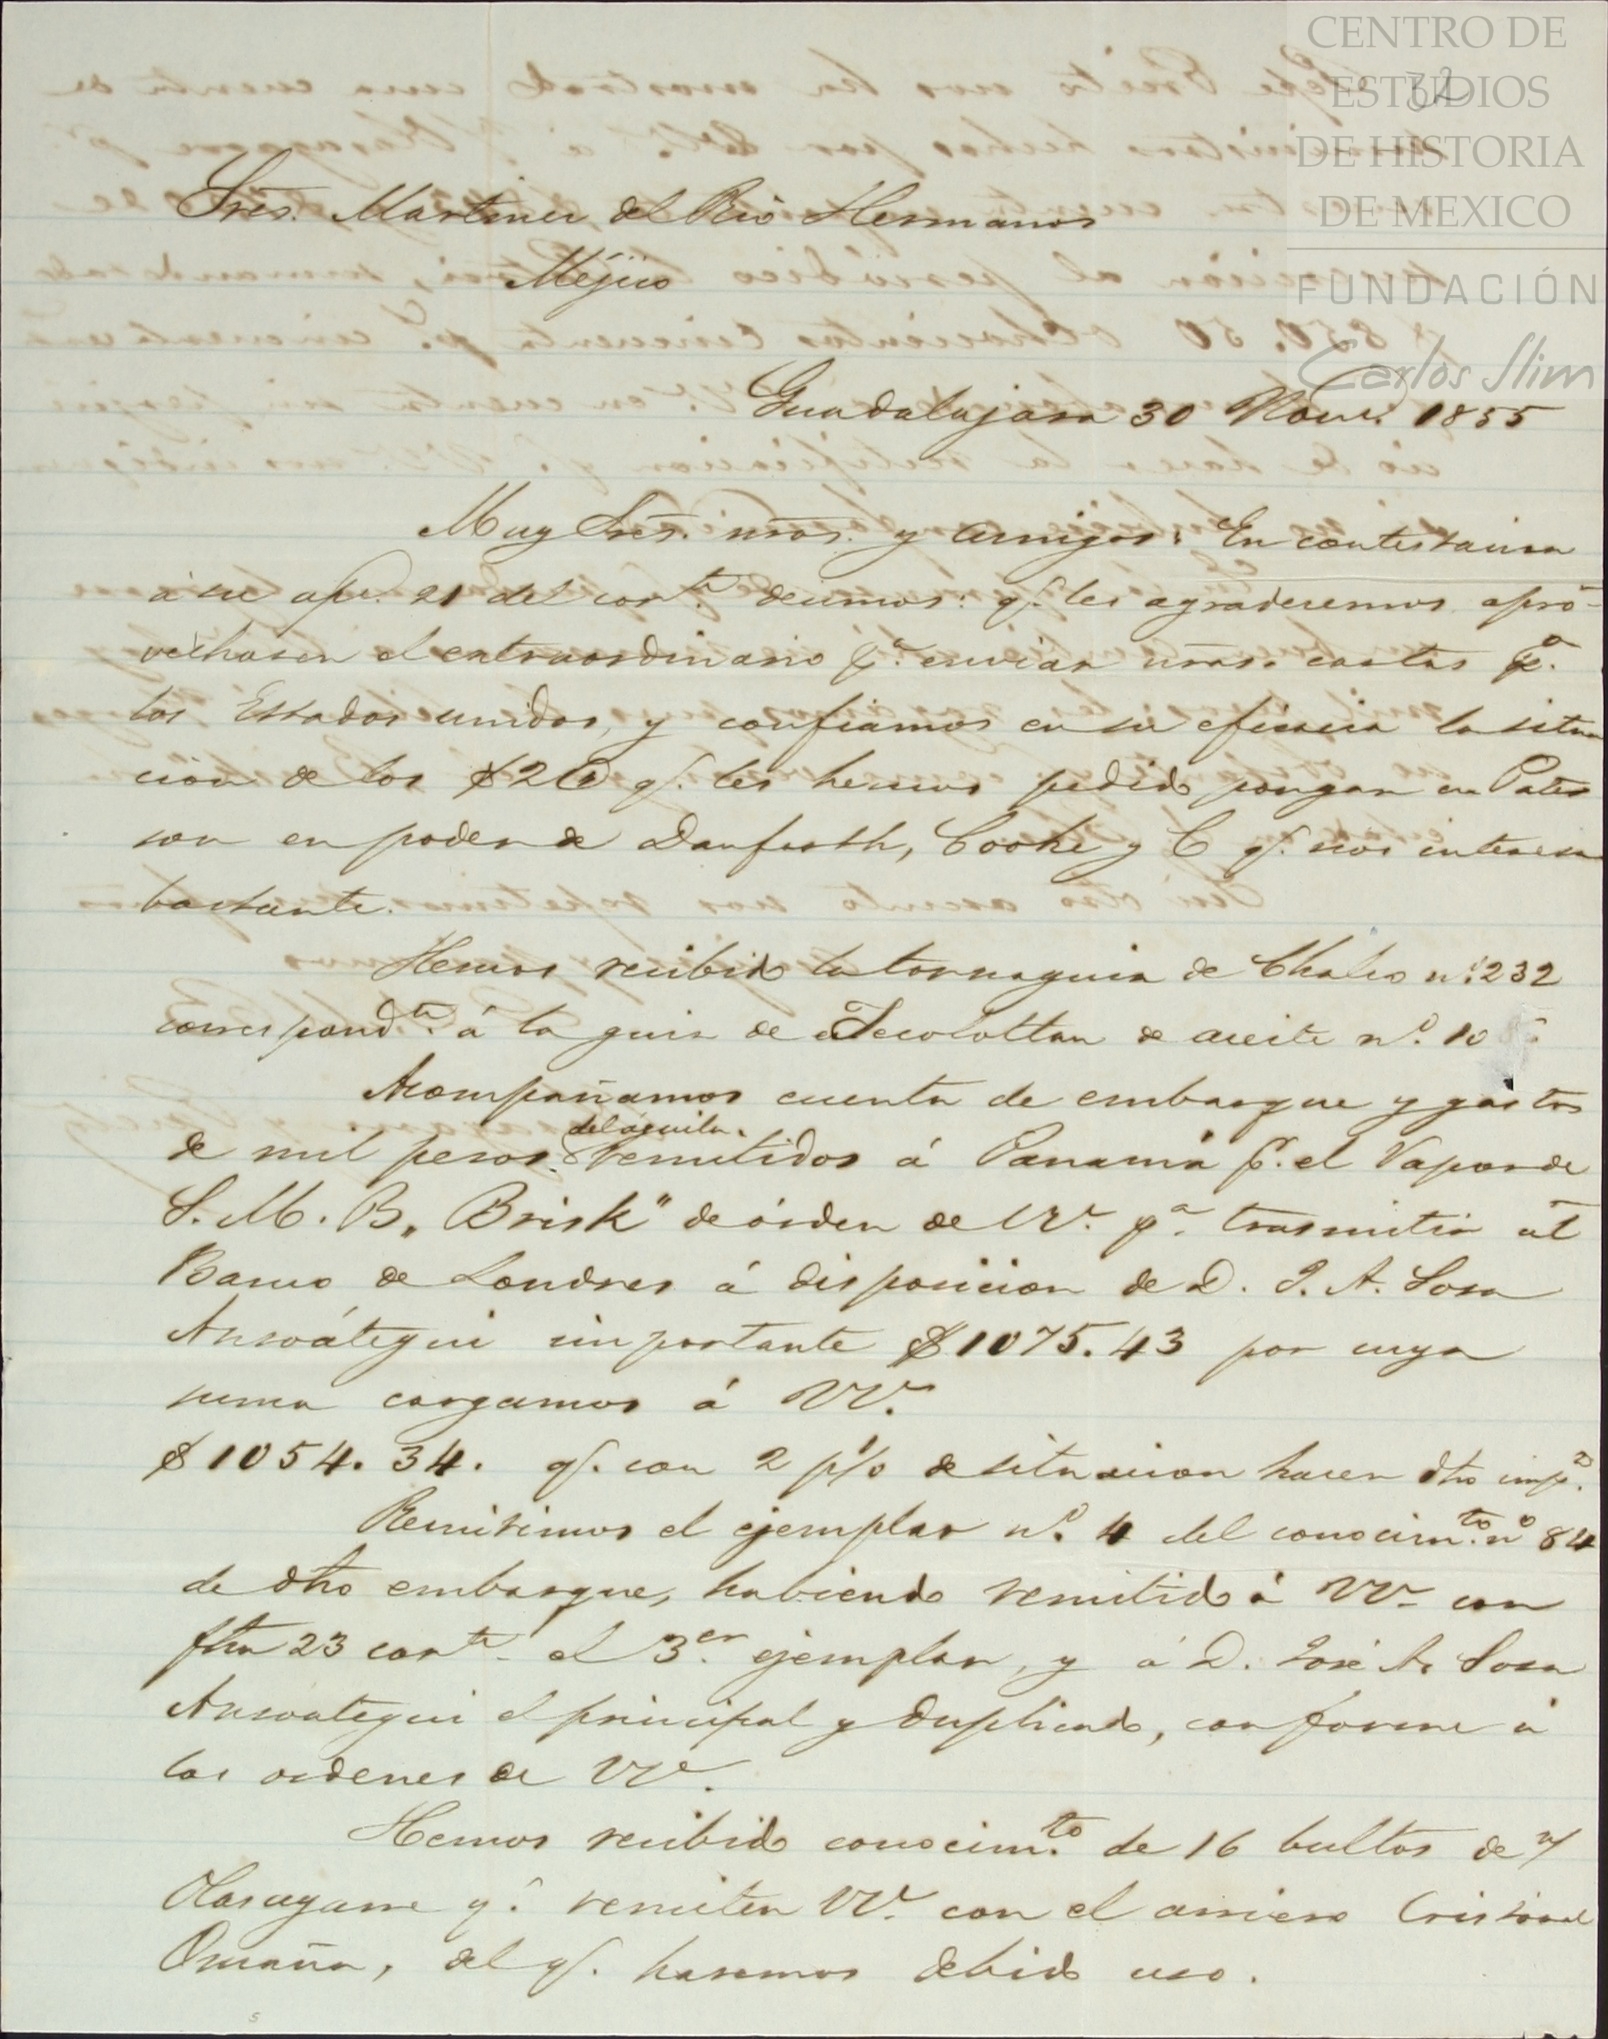 CENTRO DE
ESTUDIOS
DE HISTORIA
DE MEXICO
FUNDACIÓN
Carlos Slim
32
Sres. Martinez del Rio Hermanos
Méjico
Guadalajara 30 Nove. 1855
Muy Sres. nros. y amigos: En contestacion
á su apr. 21 del corte. decimos: q. les agradecemos apro-
vechasen el extraordinario pa. enviar nras. cartas pa.
los Estados unidos, y confiamos en su eficacia la situa
cion de los $ q. les hemos pedido pongan en Pater
son en poder de Danforth, Cooke y C q. nos interesa
bastante.
Hemos recibido la tornaguia de Chalco no. 232
correspondte. á la guia de Tecolotlan de aceite no. 10
Acompañamos cuenta de embarque y gastos
de mil pesos del águila. remitidos á Panamá p. el Vapor de
S. M. B. „Brisk" de órden de VV. pa. trasmitir al
Banco de Londres á disposicion de D. J. A. Sosa
Ansoátegui importante $1075.43 por cuya
suma cargamos á VV.
$1054.34. q. con 2 p/o de situacion hacen dho impe.
Remitimos el ejemplar no. 4 del conocimto. no 84
de dho embarque, habiendo remitido á VV. con
fha 23 corte. el 3er. ejemplar, y á D. José A. Sosa
Ansoategui el principal y duplicado, conforme á
las ordenes de VV.
Hemos recibido conocimto. de 16 bultos de n/
Olasagarre q. remiten VV. con el arriero Cristoval
Omaña, del q. haremos debido uso.